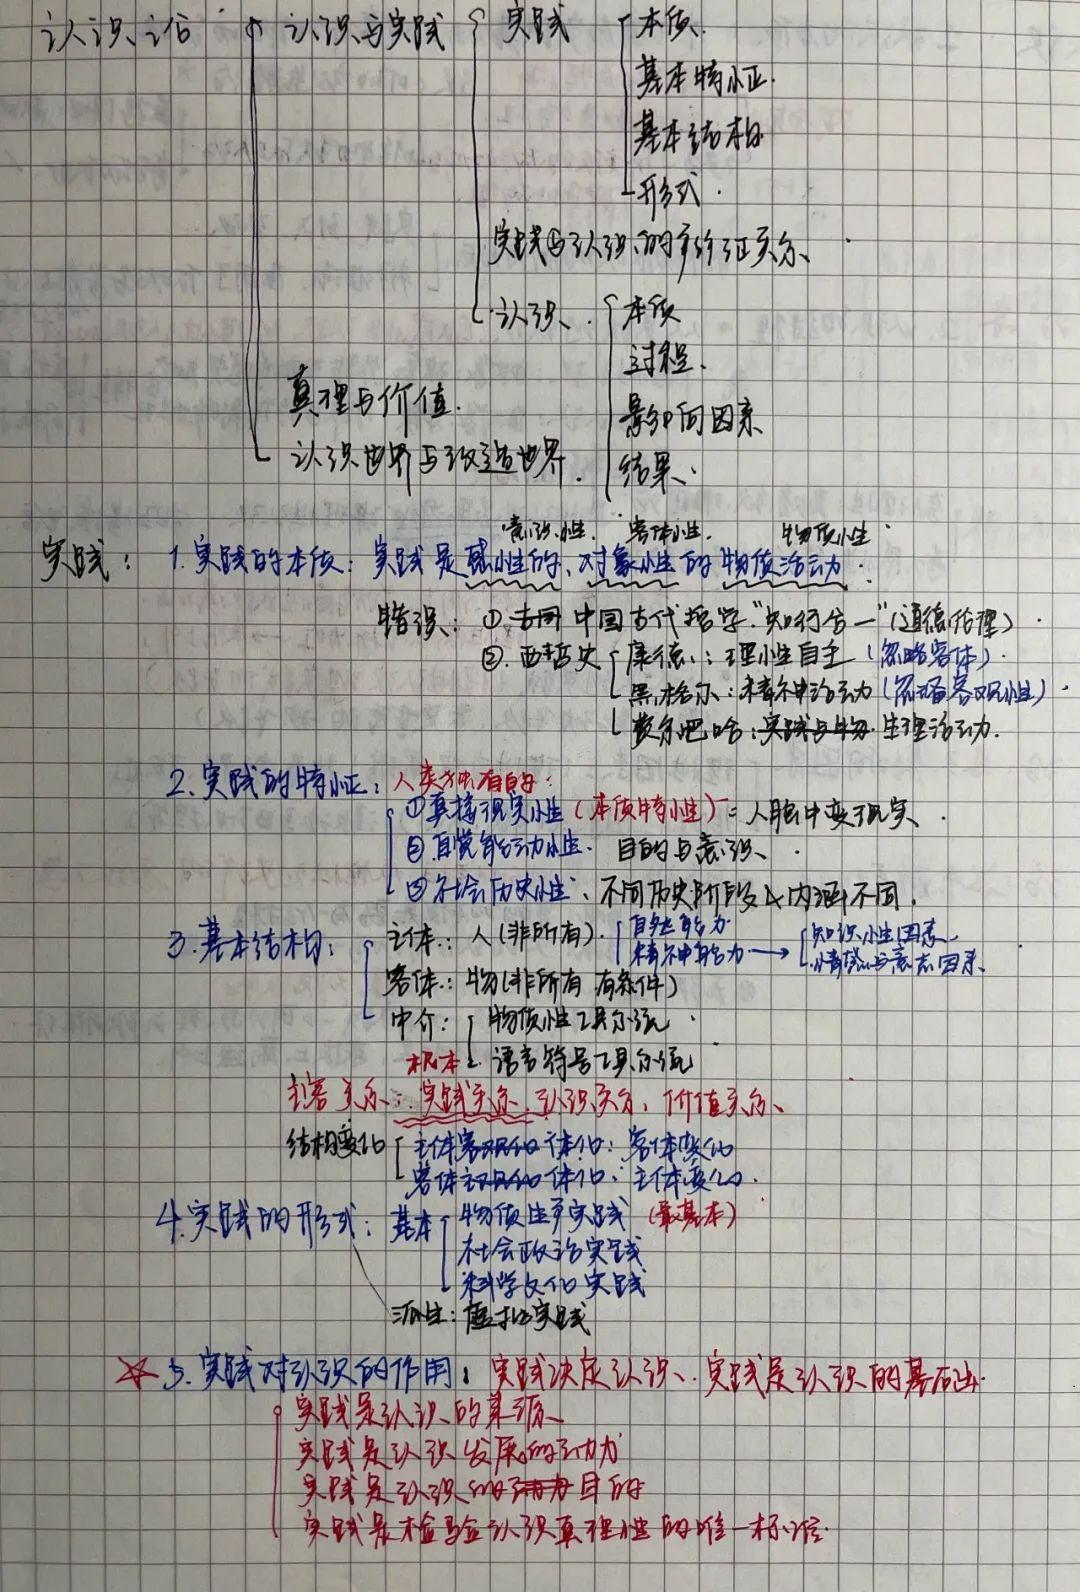 认识论 认识与实践 实践 本质.
基本特征.
基本结构
形式.
实践与认识的辩证关系.
认识. 本质
过程.
真理与价值. 影响因素
认识世界与改造世界. 结果.
意识性. 客体性. 物质性
实践: 1.实践的本质: 实践是感性的、对象性的物质活动.
错误: ①古 中国古代哲学"知行合一"(道德伦理).
②.西哲史 康德: 理性自主 (忽略客体).
黑格尔: 精神活动 (忽略客观性).
费尔巴哈: 生理活动.
2.实践的特征: 人类独有的:
①直接现实性 (本质特性): 人脑中变现实.
②自觉能动性. 目的与意识.
③社会历史性. 不同历史阶段 内涵不同.
3.基本结构: 主体: 人 (非所有). 自然能力
精神能力 → 知识性因素.
情感与意志因素.
客体: 物(非所有 有条件)
中介: 物质性工具系统.
根本 语言符号工具系统
主客关系: 实践关系. 认识关系. 价值关系.
结构变化 主体客体化: 客体变化
客体主体化: 主体变化.
4.实践的形式: 基本 物质生产实践 (最基本)
社会政治实践
科学文化实践
派生: 虚拟实践
☆ 5.实践对认识的作用: 实践决定认识. 实践是认识的基础.
实践是认识的来源.
实践是认识发展的动力
实践是认识的目的
实践是检验认识真理性的唯一标准.